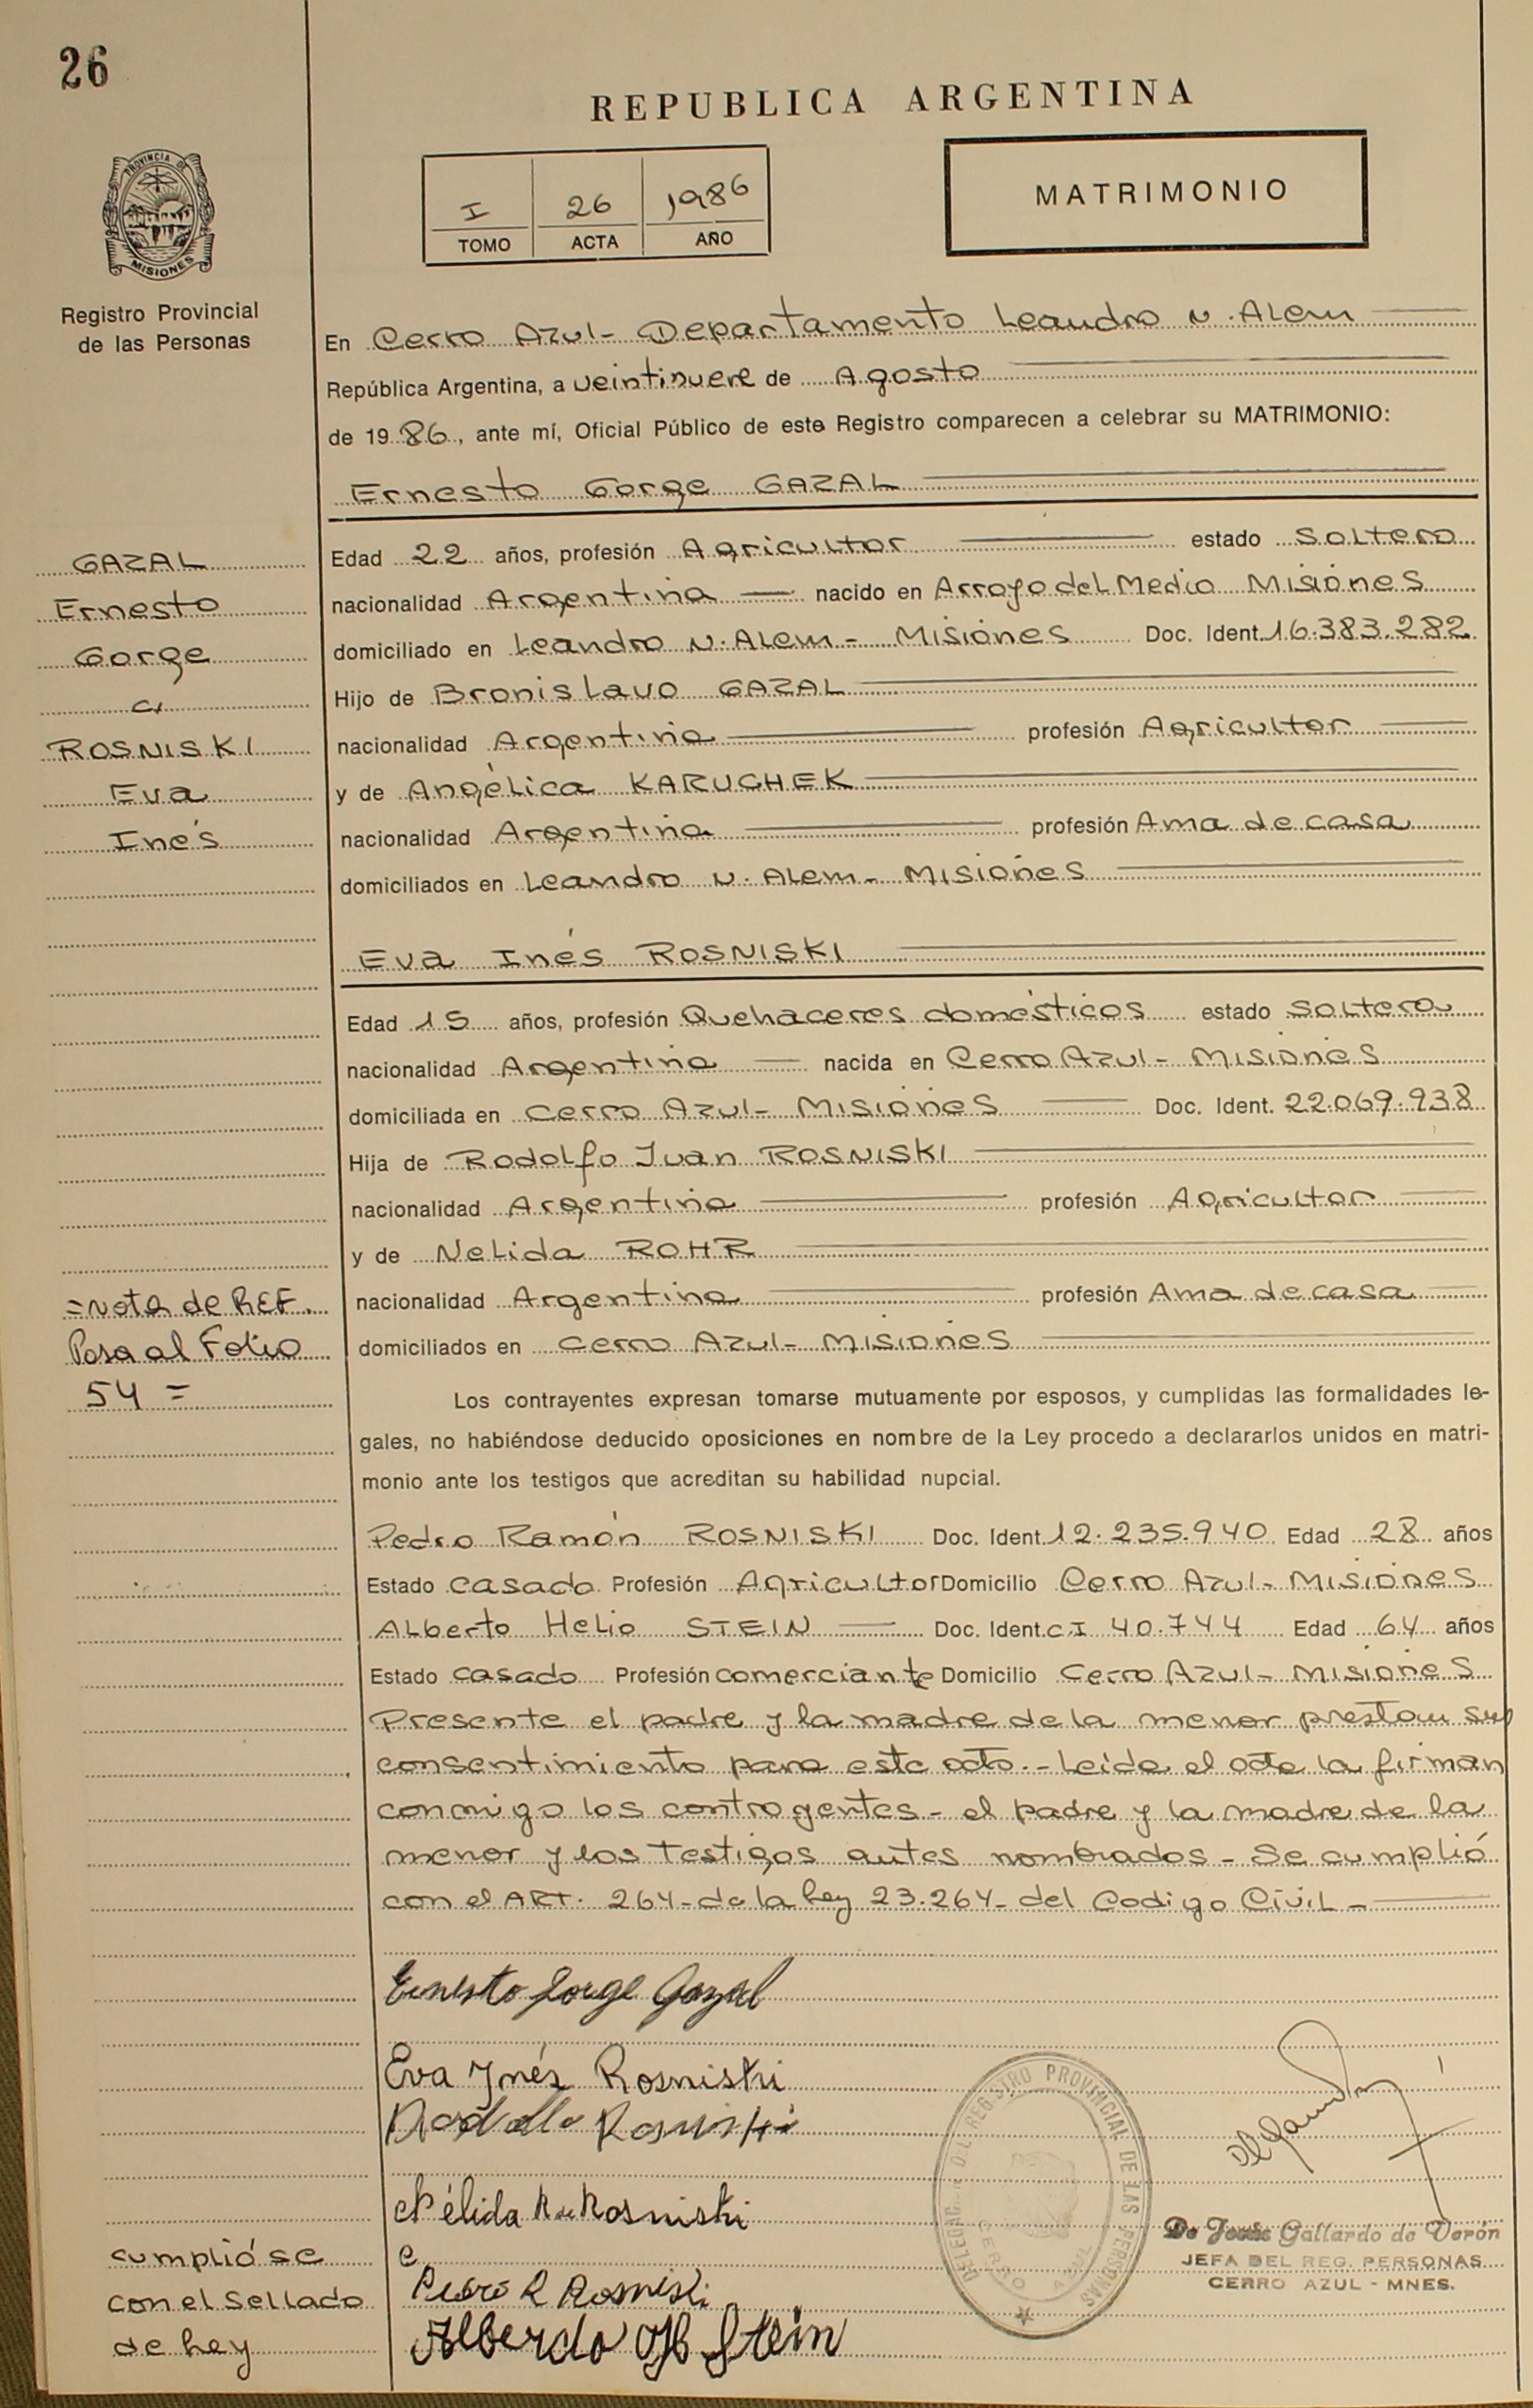 26
REPUBLICA ARGENTINA
PROVINCIA DE
MISIONES
Registro Provincial
de las Personas
I 26 1986
TOMO ACTA AÑO
MATRIMONIO
En Cerro Azul - Departamento Leandro N. Alem
República Argentina, a veintinueve de Agosto
de 1986, ante mí, Oficial Público de este Registro comparecen a celebrar su MATRIMONIO:
Ernesto Gorge GAZAL
GAZAL
Ernesto
Gorge
c/
ROSNISKI
Eva
Inés
Edad 22 años, profesión Agricultor estado Soltero
nacionalidad Argentina nacido en Arroyo del Medio Misiones
domiciliado en Leandro N. Alem - Misiones Doc. Ident. 16.383.282
Hijo de Bronislavo GAZAL
nacionalidad Argentina profesión Agricultor
y de Angélica KARUCHEK
nacionalidad Argentina profesión Ama de casa
domiciliados en Leandro N. Alem - Misiones
Eva Inés ROSNISKI
Edad 15 años, profesión Quehaceres domésticos estado Soltera
nacionalidad Argentina nacida en Cerro Azul - Misiones
domiciliada en Cerro Azul - Misiones Doc. Ident. 22.069.938
Hija de Rodolfo Juan ROSNISKI
nacionalidad Argentina profesión Agricultor
y de Nelida ROHR
nacionalidad Argentina profesión Ama de casa
domiciliados en Cerro Azul - Misiones
= Nota de REF.
Pasa al Folio
54 =
Los contrayentes expresan tomarse mutuamente por esposos, y cumplidas las formalidades le-
gales, no habiéndose deducido oposiciones en nombre de la Ley procedo a declararlos unidos en matri-
monio ante los testigos que acreditan su habilidad nupcial.
Pedro Ramón ROSNISKI Doc. Ident. 12.235.940 Edad 28 años
Estado Casado Profesión Agricultor Domicilio Cerro Azul - Misiones
Alberto Helio STEIN Doc. Ident. C.I 40.744 Edad 64 años
Estado casado Profesión comerciante Domicilio Cerro Azul - Misiones
Presente el padre y la madre de la menor prestan su
consentimiento para este acto. - Leida el acta la firman
conmigo los contragentes - el padre y la madre de la
menor y los testigos antes nombrados - Se cumplió
con el ART. 264 - de la Ley 23.264 - del Codigo Civil -
Ernesto Jorge Gazal
Eva Inés Rosniski
Rodolfo Rosniski
Nélida R de Rosniski
Pedro R Rosniski
Alberdo H Stein
DELEGAC. DEL REGISTRO PROVINCIAL DE LAS PERSONAS
CERRO AZUL
De Jesús Gallardo de Verón
JEFA DEL REG. PERSONAS
CERRO AZUL - MNES.
cumplióse
con el Sellado
de Ley